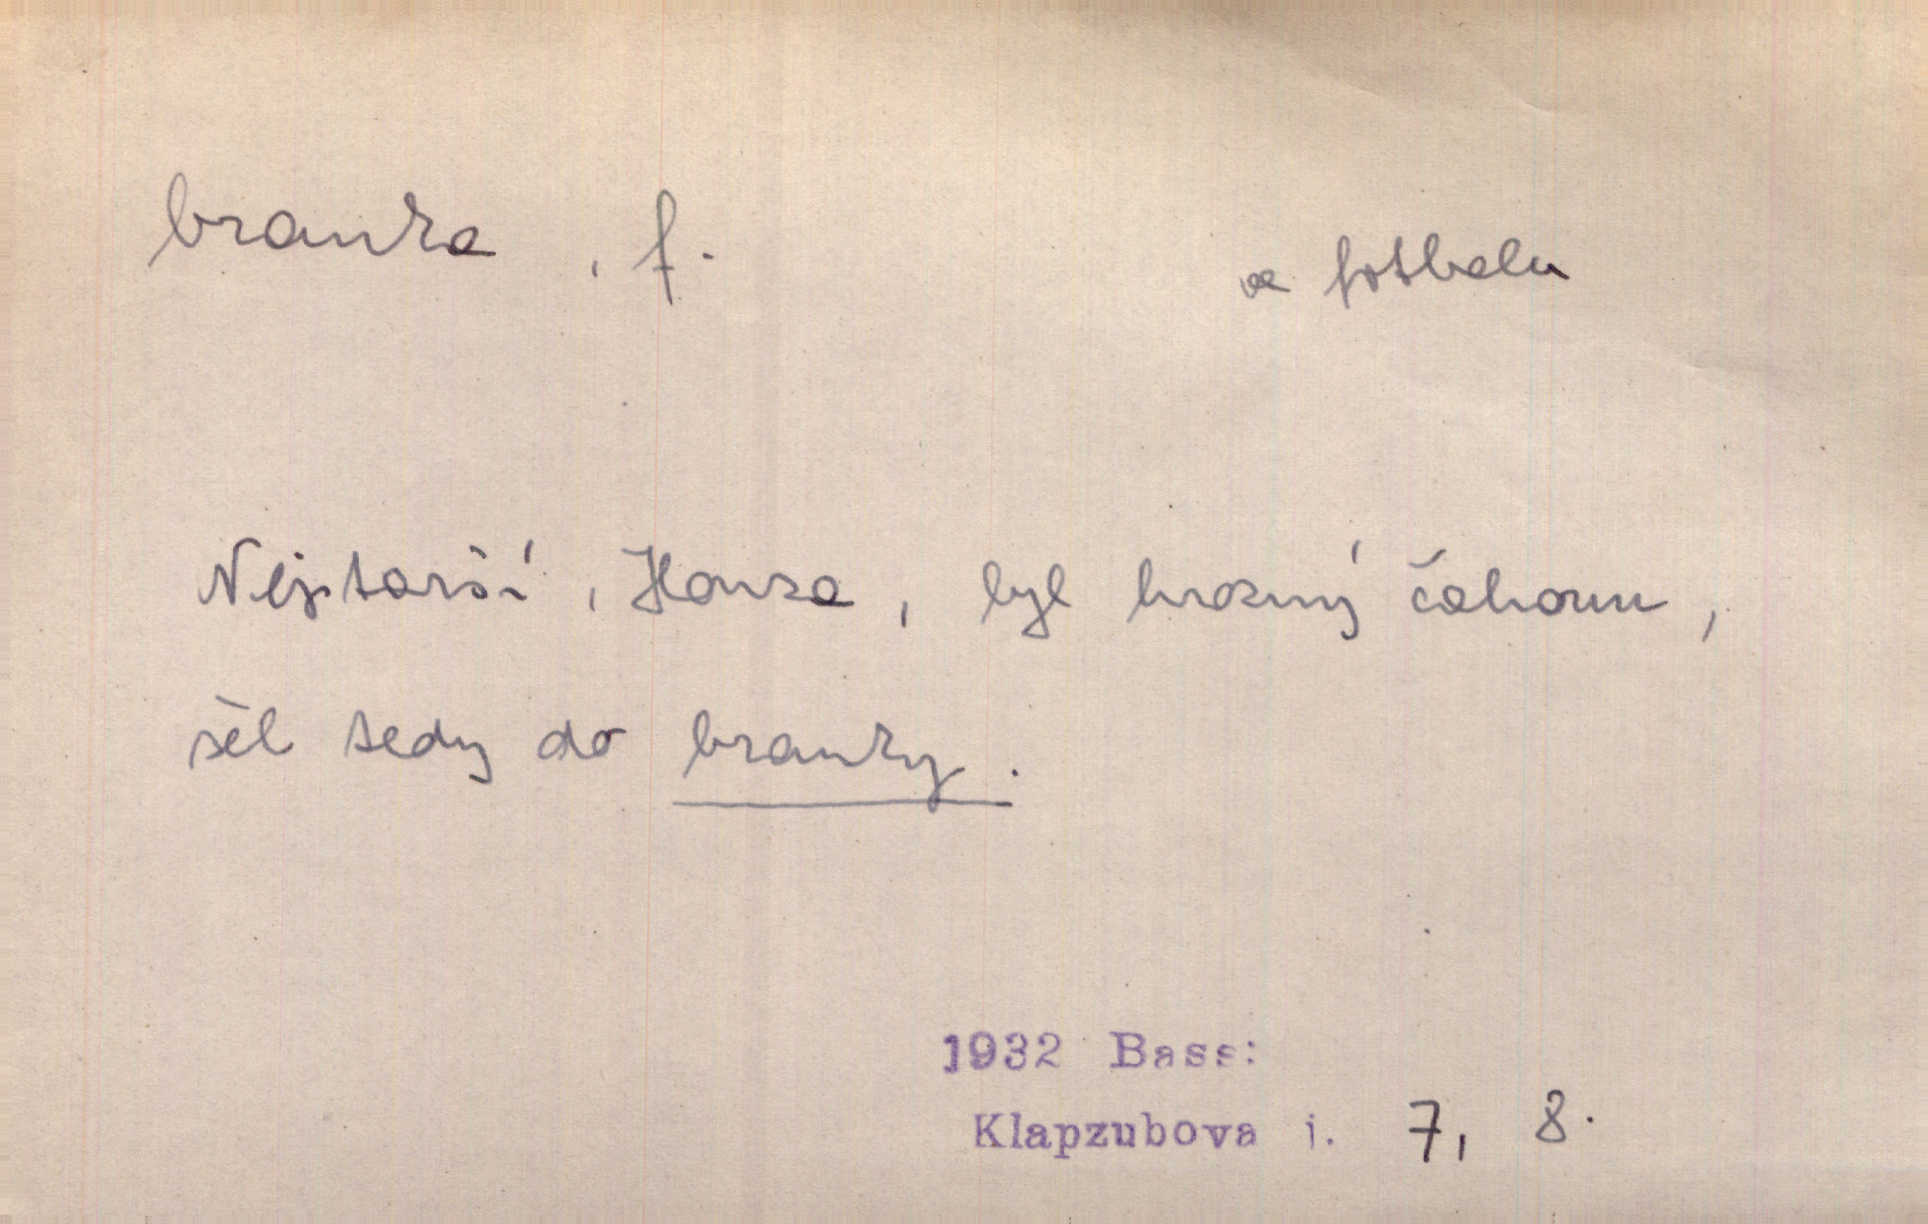 branka, f. ve fotbalu
Nejstarší, Honza, byl hrozný čahoun,
šel tedy do branky.
1932 Bass:
Klapzubova j. 7, 8.